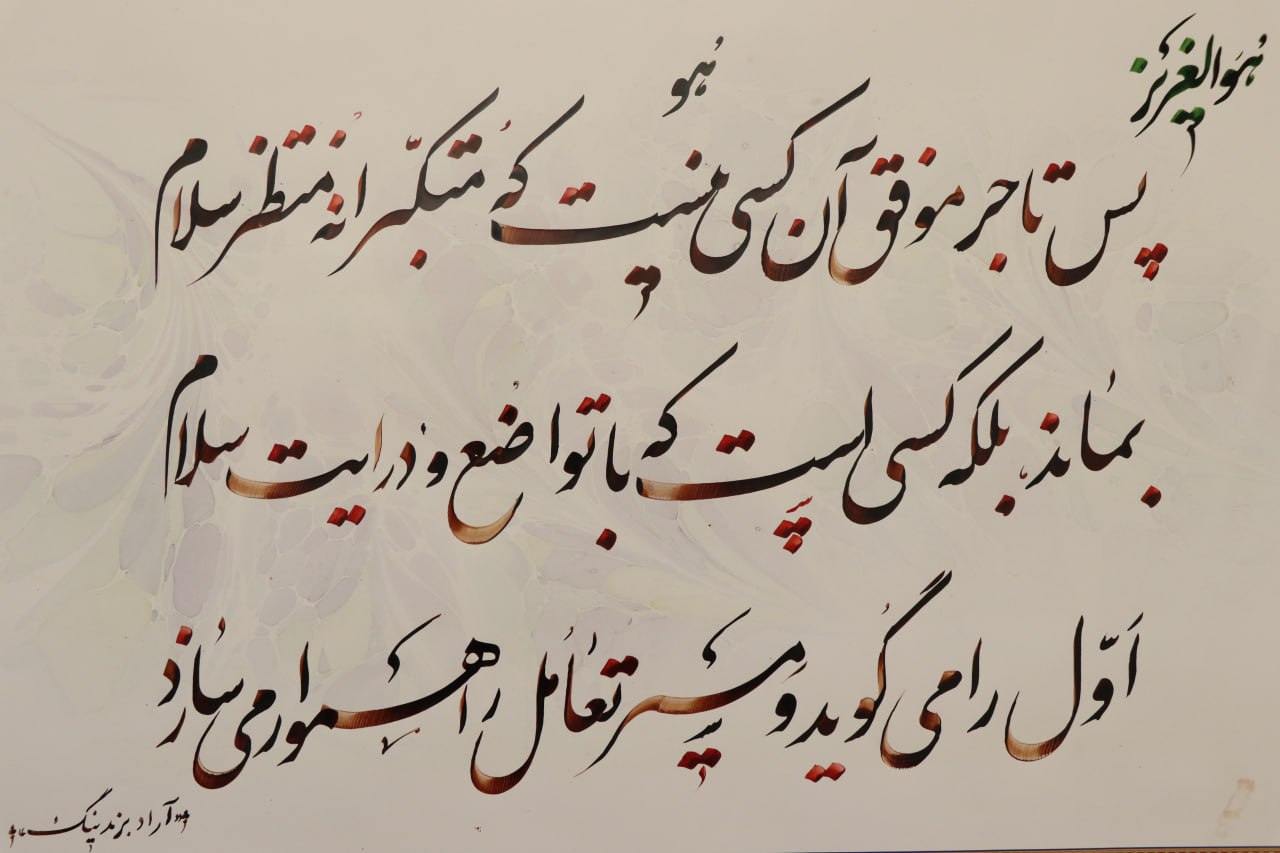 هو العزیز
هو
پس تاجر موفق آن کسی نیست که متکبّرانه منتظر سلام
بماند بلکه کسی است که با تواضع و درایت سلام
اوّل را می گوید و مسیر تعامل را هموار می سازد
«آراد برندینگ»